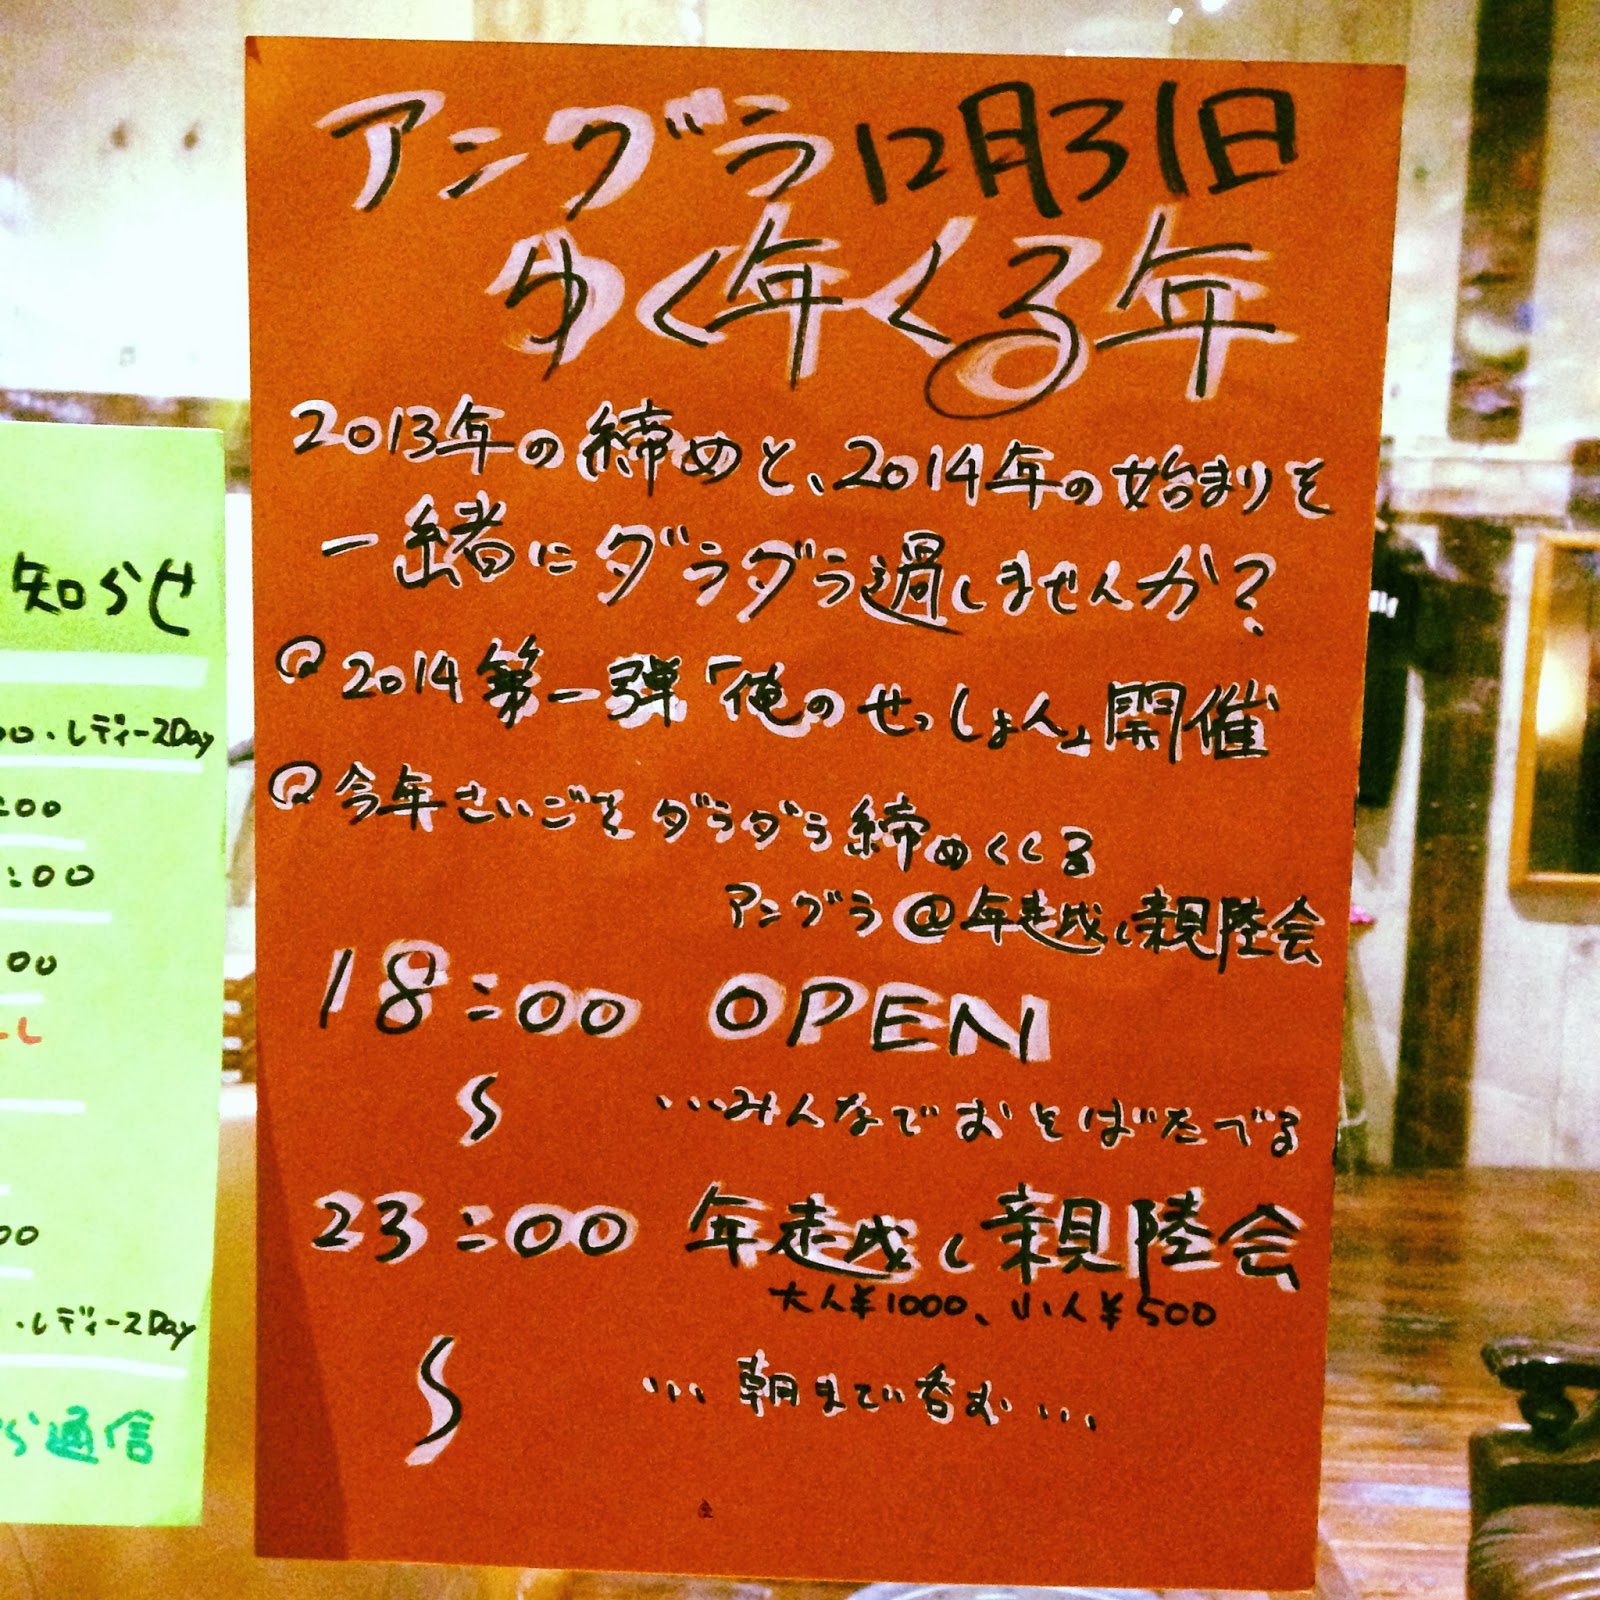 アングラ12月31日
ゆく年くる年
2013年の締めと、2014年の始まりを
一緒にダラダラ過しませんか?
2014第一弾「俺のせっしょん」開催
今年さいごをダラダラ締めくくる
アングラ@年越し親陸会
18:00 OPEN
…みんなでおそばたべる
23:00 年越し親陸会
大人¥1000、小人¥500
…朝まで呑む…
知らせ
00・レディースDay
:00
:00
:00
し
00
・レディースDay
ら通信